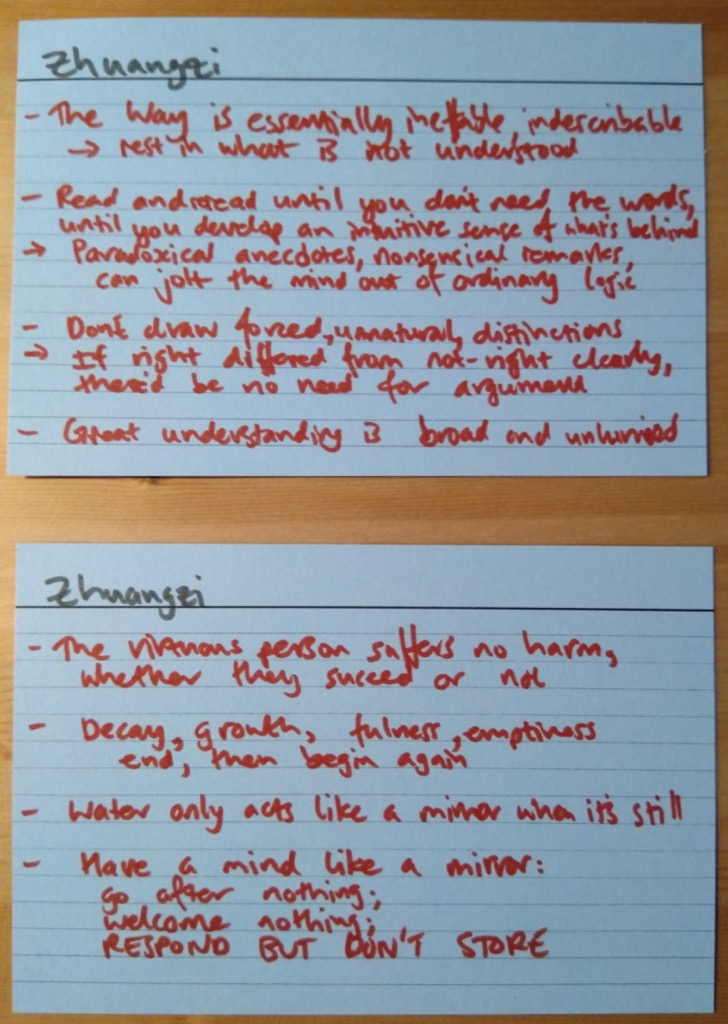 Zhuangzi
- The Way is essentially ineffable, indescribable
→ rest in what is not understood
- Read and reread until you don't need the words,
until you develop an intuitive sense of what's behind
→ Paradoxical anecdotes, nonsensical remarks,
can jolt the mind out of ordinary logic
- Don't draw forced, unnatural, distinctions
→ If right differed from not-right clearly,
there'd be no need for argument
- Great understanding is broad and unhurried
Zhuangzi
- The virtuous person suffers no harm,
whether they succeed or not
- Decay, growth, fulness, emptiness
end, then begin again
- Water only acts like a mirror when it's still
- Have a mind like a mirror:
go after nothing;
welcome nothing;
RESPOND BUT DON'T STORE